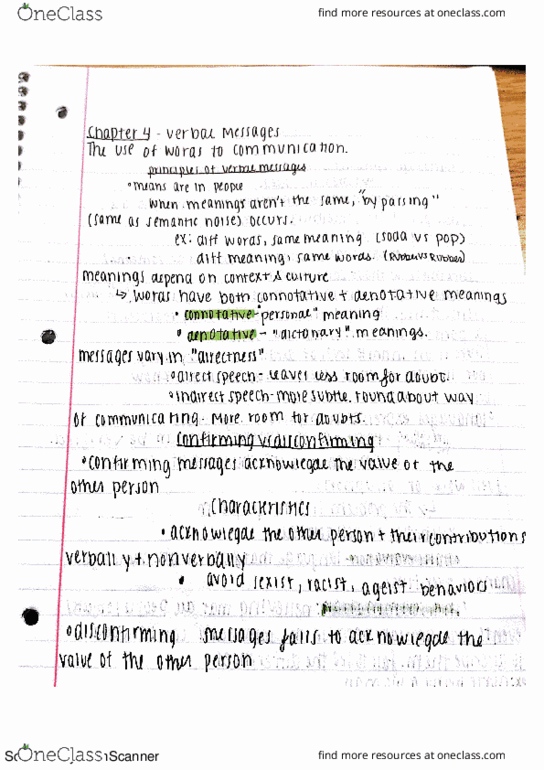 OneClass find more resources at oneclass.com
Chapter 4 - Verbal Messages
The use of words to communication.
principles of verbal messages
• means are in people
when meanings aren't the same, "by passing"
(same as semantic noise) occurs.
ex: diff words, same meaning (soda vs pop)
diff meaning, same words. (Rubber vs Rubber)
meanings depend on context & culture
↳ words have both connotative + denotative meanings
• connotative - "personal" meaning
• denotative - "dictonary" meanings.
messages vary in "directness"
• direct speech - leaves less room for doubt.
• indirect speech - more subtle, round about way
of communicating. More room for doubts.
Confirming vs disconfirming
• confirming messages acknowlegde the value of the
other person
Characteristics
• acknowlegde the other person + their contributions
verbally + nonverbally
• avoid sexist, racist, ageist behaviors
• disconfirming messages fails to acknowlegde the
value of the other person
OneClass Scanner find more resources at oneclass.com